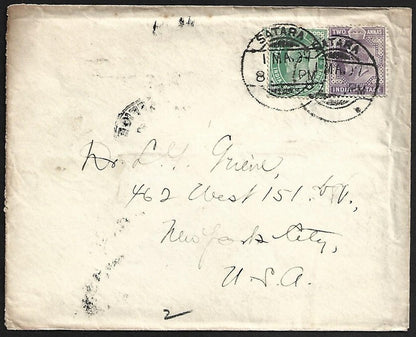 SATARA SATARA
1 MA.07
8 PM
TWO ANNAS
INDIA POSTAGE
Dr. L. G.
462 West 151. St.,
New York City,
U.S.A.
2